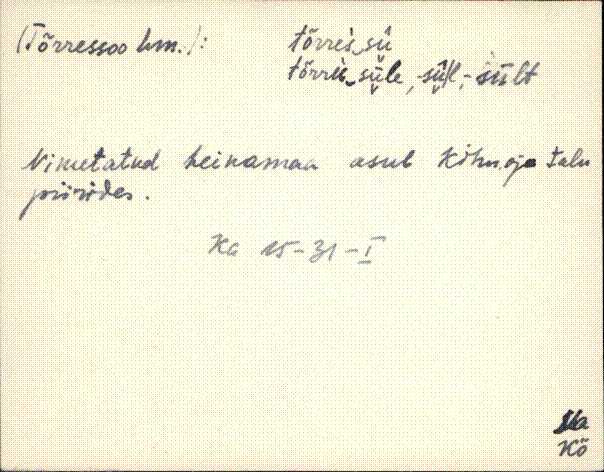 (Tõrressoo hm.): tõrres‿sū
tõrrū‿sūle, -sūl, -sūlt
Nimetatud heinamaa asub Kõhnoja talu
piirides.
Ka 15-31-I
Ma
Kõ